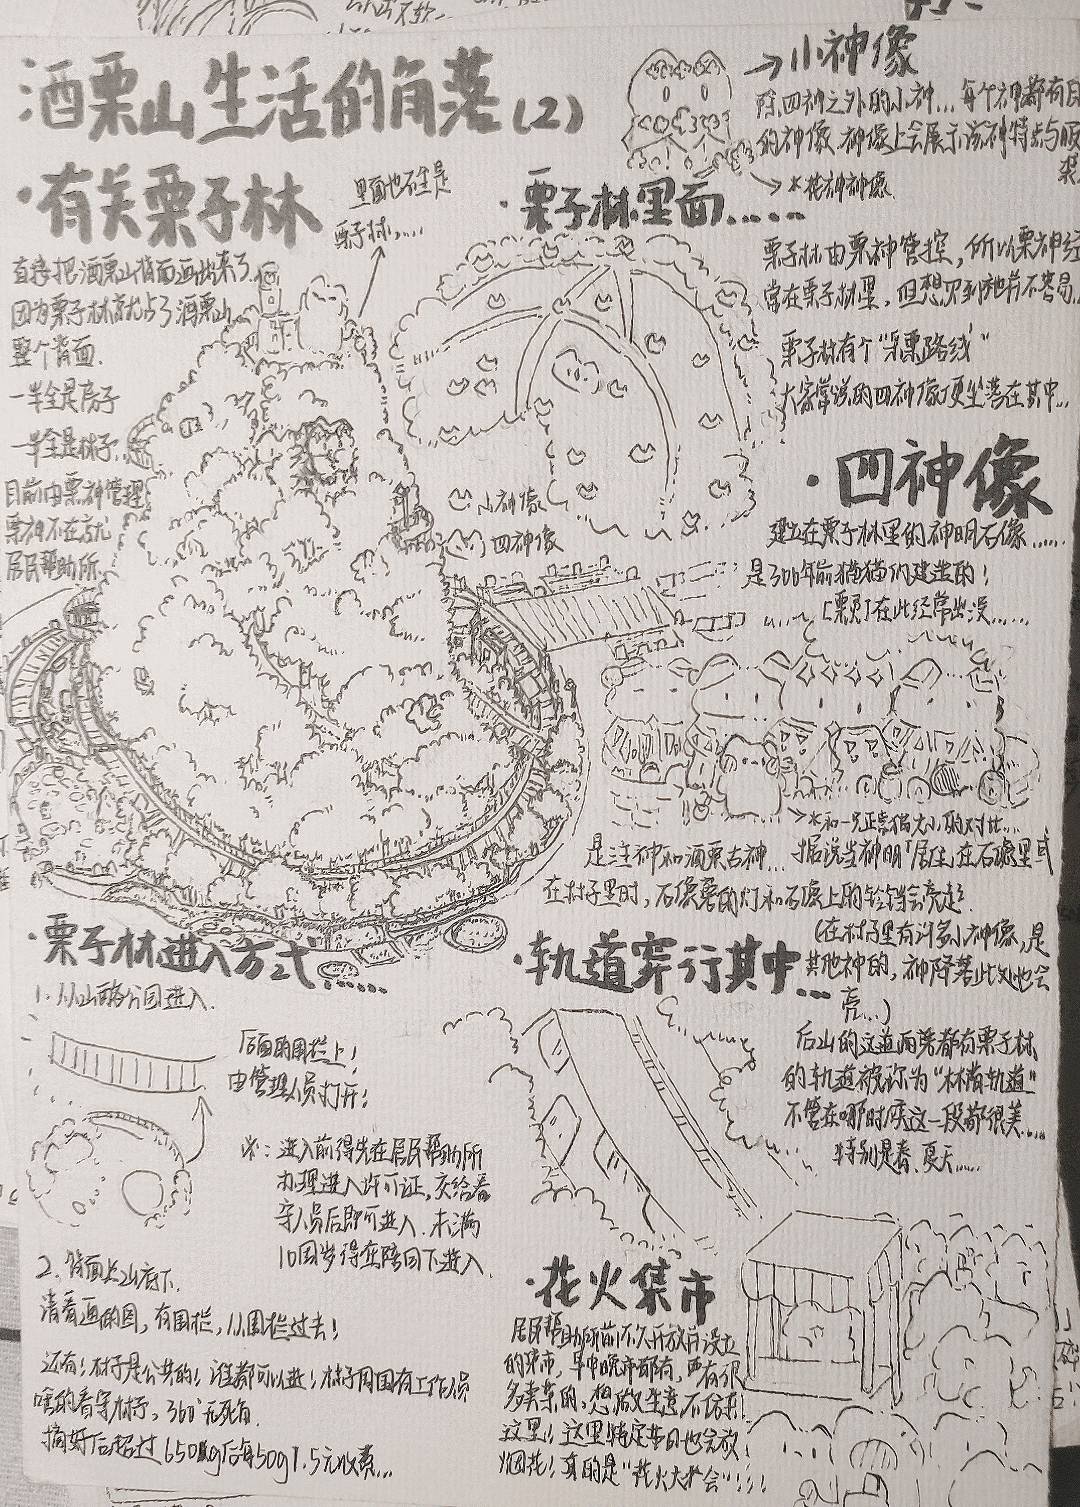 酒栗山生活的角落(2)
·有关栗子林
里面也不全是
栗子林……
直接把酒栗山背面画出来了
因为栗子林就占了酒栗山
整个背面
一半全是房子
一半全是林子
目前由栗神管理
栗神不在就
居民帮助所
→小神像
除四神之外的小神…每个神都有自
的神像,神像上会展示该神特点与服
装
→*花神神像
·栗子林里面……
栗子林由栗神管控,所以栗神经
常在栗子林里,但想见到她并不容易
栗子林有个“采栗路线”
大家常说的四神像便坐落在其中…
小神像
四神像
·四神像
建立在栗子林里的神明石像……
是300年前猫猫们建造的!
在此经常出没……
→*和一只正常猫大小的对比…
是注神和酒栗古神… 据说当神明「居住」在石像里或
在林子里时,石像旁的灯和石像上的铃铛会亮起
(在林子里有许多小神像,是
其他神的,神降落此处也会
亮…)
·栗子林进入方式……
1.从山路公园进入
后面的围栏上!
由管理人员打开!
※:进入前得先在居民帮助所
办理进入许可证,交给看
守人员后即可进入.未满
10周岁得在陪同下进入
2.背面上山底下
请看画的图,有围栏,从围栏过去!
还有!林子是公共的!谁都可以进!林子周围有工作人员
啥的看守林子,360°无死角
摘好后超过650g后每50g1.5元收费…
·轨道穿行其中…
后山的这道两旁都有栗子林
的轨道被称为“林背轨道”
不管在哪时候这一段都很美……
特别是春、夏天……
·花火集市
居民帮助所前不久开放并设立
的集市,早中晚市都有,要有很
多卖菜的,想做生意不妨来
这里!这里特定节日也会放
烟花!真的是“花火大会”!!!!